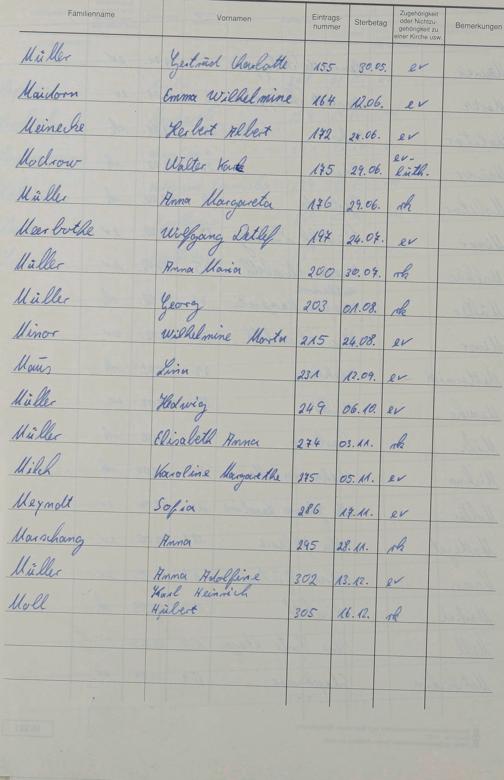 Familienname Vornamen Eintrags-nummer Sterbetag Zugehörigkeit oder Nichtzu-gehörigkeit zu einer Kirche usw. Bemerkungen
Müller Gertrud Charlotte 155 30.05. ev
Maidorn Emma Wilhelmine 164 12.06. ev
Meinecke Herbert Albert 172 24.06. ev
Modrow Walter Karl 175 29.06. ev-luth.
Müller Anna Margareta 176 29.06. rk
Meerbothe Wolfgang Detlef 197 24.07. ev
Müller Anna Maria 200 30.07. rk
Müller Georg 203 01.08. rk
Minor Wilhelmine Marta 215 24.08. ev
Maus Lina 231 12.09. ev
Müller Hedwig 249 06.10. ev
Müller Elisabeth Anna 274 03.11. rk
Milch Karoline Margarethe 275 05.11. ev
Meyndt Sofia 286 17.11. ev
Marschang Anna 295 28.11. rk
Müller Anna Adolfine 302 13.12. ev
Moll Karl Heinrich Hubert 305 16.12. rk